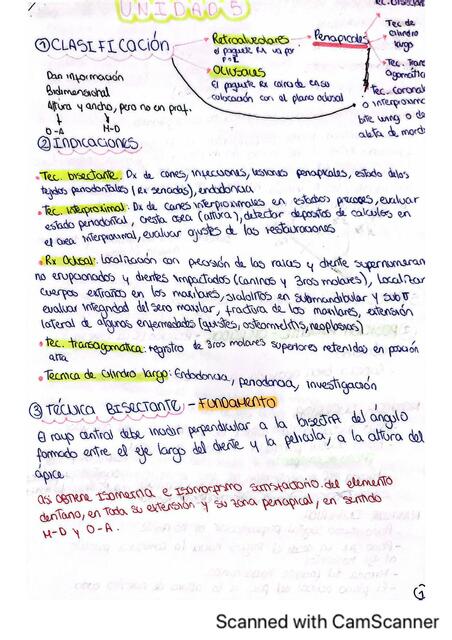 UNIDAD 5
① CLASIFICACIÓN
Retroalveolares
el paquete Rx va por
P=R
Periapicales
Tec. Bisectriz
Tec de
cilindro
largo
Dan información
Bidimensional
Altura y ancho, pero no en prof.
O-A M-D
Oclusales
El paquete Rx coincide en su
colocación con el plano oclusal
Tec. Coronal
o interproxim
bite wing o de
aleta de mord
② INDICACIONES
• Tec. bisectante: Dx de caries, infecciones, lesiones periapicales, estado de los
tejidos periodontales (Rx seriadas), endodoncia
• Tec. Interproximal: Dx de caries interproximales en estadios precoces, evaluar
estado periodontal, cresta osea (altura), detectar depositos de calculos en
el area interproximal, evaluar ajustes de las restauraciones
• Rx Oclusal: localización con precisión de las raices y diente supernumerari
no erupcionados y dientes impactados (caninos y 3ros molares), localizar
cuerpos extraños en los maxilares, sialolitos en submandibular y
evaluar integridad del seno maxilar, fractura de los maxilares, extensión
lateral de algunas enfermedades (quistes, osteomielitis, neoplasias)
• tec. transagomatica: registro de 3ros molares superiores retenidos en posición
alta
• Tecnica de cilindro largo: Endodoncia, periodoncia, investigación
③ TÉCNICA BISECTANTE - FUNDAMENTO
El rayo central debe incidir perpendicular a la bisectriz del ángulo
formado entre el eje largo del diente y la pelicula, a la altura del
ápice
asi obtiene Isometria e Isomorfismo satisfactorio del elemento
dentario, en toda su extensión y su zona periapical, en sentido
M-D y O-A.
①
Scanned with CamScanner